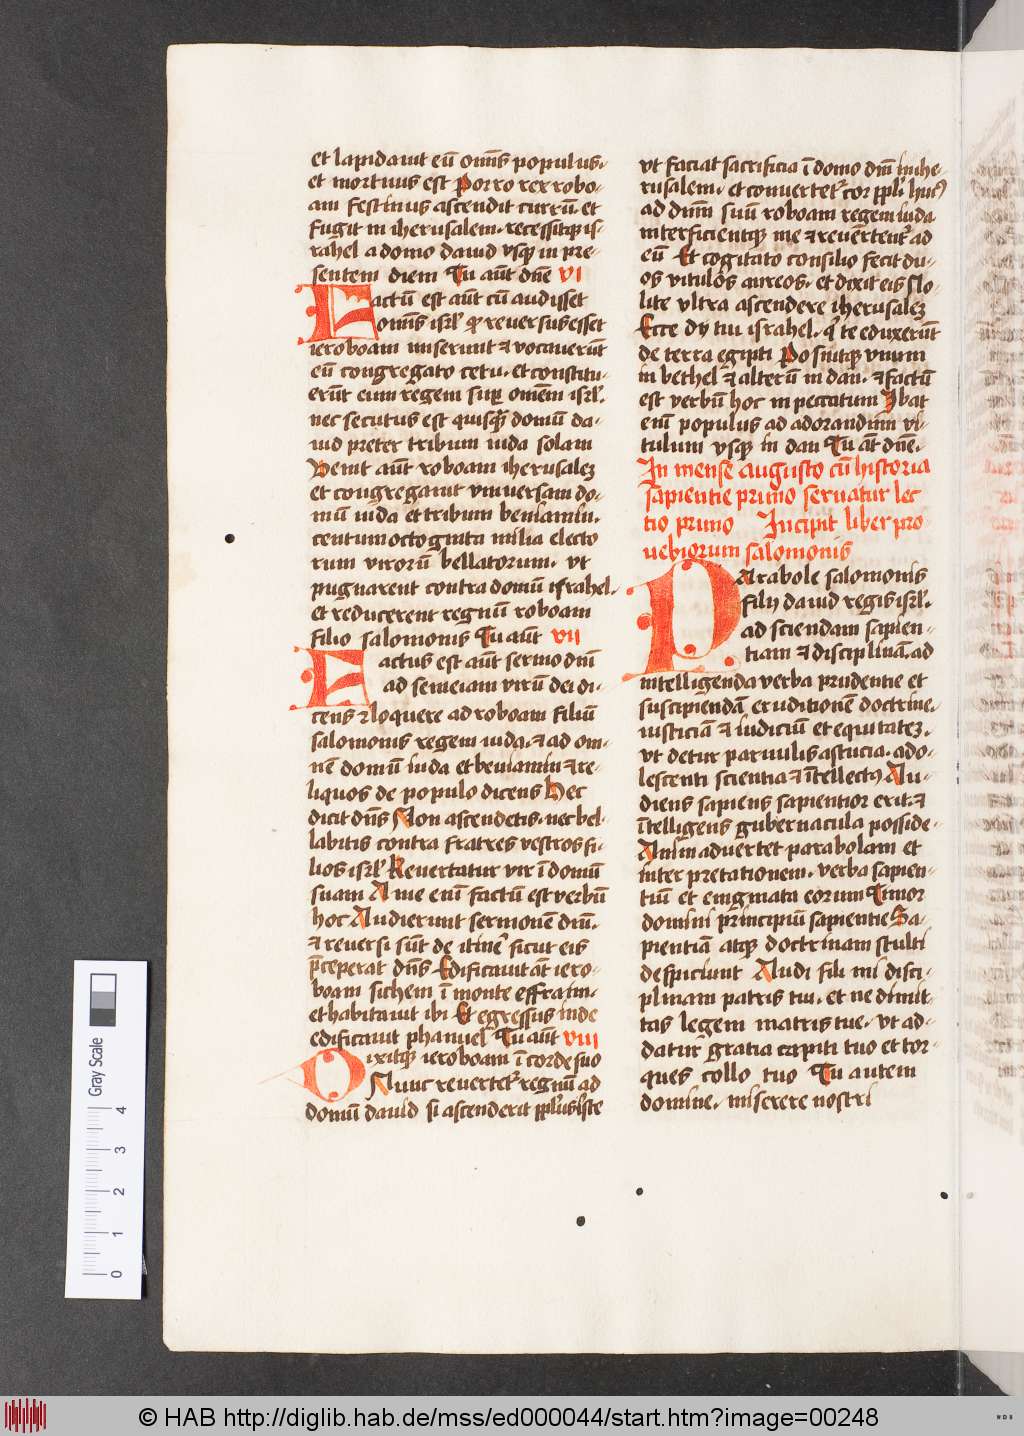 et lapidauit eū om̄s populus·
et mortuus est Porro rex robo-
am festinus ascendit currū· et
fugit in iherusalem· recessitqꝫ is-
rahel a domo dauid vsqꝫ in pre-
sentem diem Tu aūt dn̄e VI
Factū est aūt cū audisset
om̄is isrl̄ qꝫ reuersus esset
ieroboam miserunt ⁊ vocauerūt
eū congregato cetu· et constitu-
erūt eum regem suꝑ om̄em isrl̄·
nec secutus est quisqꝫ domū da-
uid preter tribum iuda solam
Venit aūt roboam iherusaleꝫ
et congregauit vniuersam do-
mū iuda et tribum beniamin·
centum octoginta milia electo
rum virorū bellatorum· vt
pugnarent contra domū israhel·
et reducerent regnū roboam
filio salomonis Tu aūt VII
Factus est aūt sermo dn̄i
ad semeiam virū dei di-
cens ⁊ loquere ad roboam filiū
salomonis regem iuda· ⁊ ad om-
nē domū iuda et beniamin ⁊ re-
liquos de populo dicens Hec
dicit dn̄s Non ascendetis· nec bel-
labitis contra fratres vestros fi-
lios isrl̄ Reuertatur vir ī domū
suam A me enī factū est verbū
hoc Audierunt sermonē dn̄i·
⁊ reuersi sūt de itinē sicut eis
p̄ceperat dn̄s Edificauit āt iero-
boam sichem ī monte effraim·
et habitauit ibi Et egressus inde
edificauit phanuel Tu aūt VIII
Dixitqꝫ ieroboam ī corde suo
Nunc reuertet᷑ regnū ad
domū dauid si ascenderit ppl̄us iste
vt faciat sacrificia ī domo dn̄i in ihe-
rusalem· et conuertet᷑ cor ppl̄i huiꝰ
ad dn̄m suū roboam regem iuda
interficientqꝫ me ⁊ reuertent᷑ ad
eū Et cogitato consilio fecit du-
os vitulos aureos· et dixit eis No-
lite vltra ascendere iherusaleꝫ
Ecce dij tui israhel· qͥ te eduxerūt
de terra egipti Posuitqꝫ vnum
in bethel ⁊ alterū in dan· ⁊ factū
est verbū hoc in peccatum Ibat
enī populus ad adorandum vi-
tulum vsqꝫ in dan Tu āt dn̄e·
In mense augusto cū historia
sapientie primo seruatur lec
tio primo Incipit liber pro
uebiorum salomonis
Parabole salomonis
filij dauid regis isrl̄·
ad sciendam sapien-
tiam ⁊ disciplinā· ad
intelligenda verba prudentie et
suscipiendā eruditionē doctrine·
iusticiā ⁊ iudiciū et equitateꝫ·
vt detur paruulis astucia· ado-
lescenti scientia ⁊ ītellectꝰ Au-
diens sapiens sapientior erit· ⁊
ītelligens gubernacula posside-
Animaduertet parabolam et
interpretationem· verba sapien-
tiū et enigmata eorum Timor
domini principiū sapientie Sa-
pientiā atqꝫ doctrinam stulti
despiciunt Audi fili mi disci-
plinam patris tui· et ne dimit-
tas legem matris tue· vt ad-
datur gratia capiti tuo et tor-
ques collo tuo Tu autem
domine· miserere nostri
Gray Scale
4
3
2
1
0
© HAB http://diglib.hab.de/mss/ed000044/start.htm?image=00248